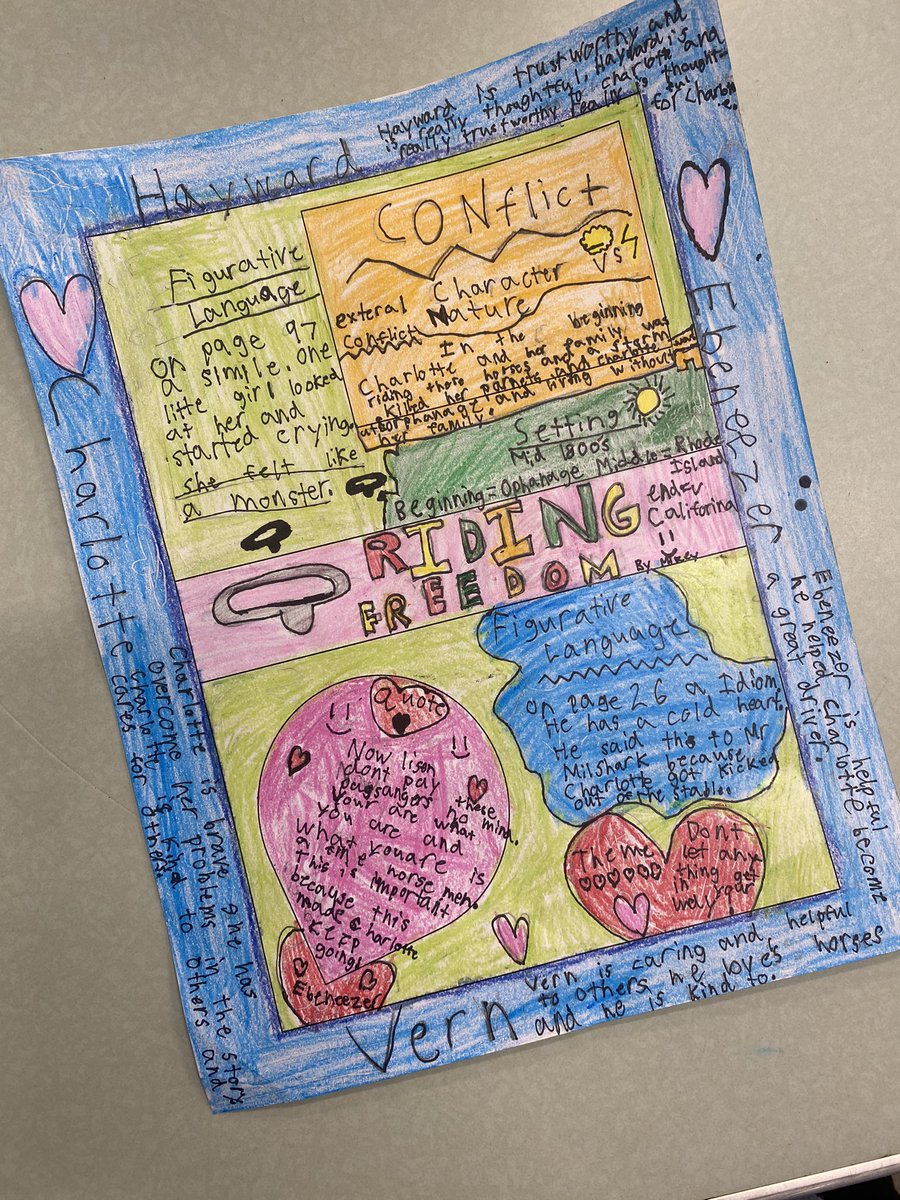 Hayward
Hayward is trustworthy and
is really thoughtful, Hayward is
really trustworthy to charlotte and
thought-
ful
for Charlott
e.
Figurative
Language
on page 97
a simile. one
litte girl looked
at her and
started crying.
she felt like
a monster.
CONflict
Character
Vs
Nature
exteral
conflict:
In the beginning
Charlotte and her family
riding there horses and a storm was
killed her parnets and charlotte went
orphanage and living without
her family.
Setting
Mid 1800s
Beginning=Ophanage Middle=Rhode
Island
end=
Califorina
RIDING
FREEDOM
By Mikey
Figurative
Language
on page 26 a Idiom
He has a cold heart.
He said this to Mr
Milshark because
Charlotte got kicked
out of the stable.
Quote
Now lisen
dont pay
these
passangers
no mind.
your are what
you are and
what you are is
a fine horse men.
This is important
because this
made Charlotte
KEEP
going!
Ebeneezer
Theme
Dont
let any
thing get
in your
way!
Charlotte
Charlotte is brave she has
overcome her problems in the story
Charlotte is kind to others and
cares for others
Ebeneezer
Ebeneezer is helpful
he helped charlotte become
a great driver.
Vern
Vern is caring and helpful
to others he loves horses
and he is kind to.